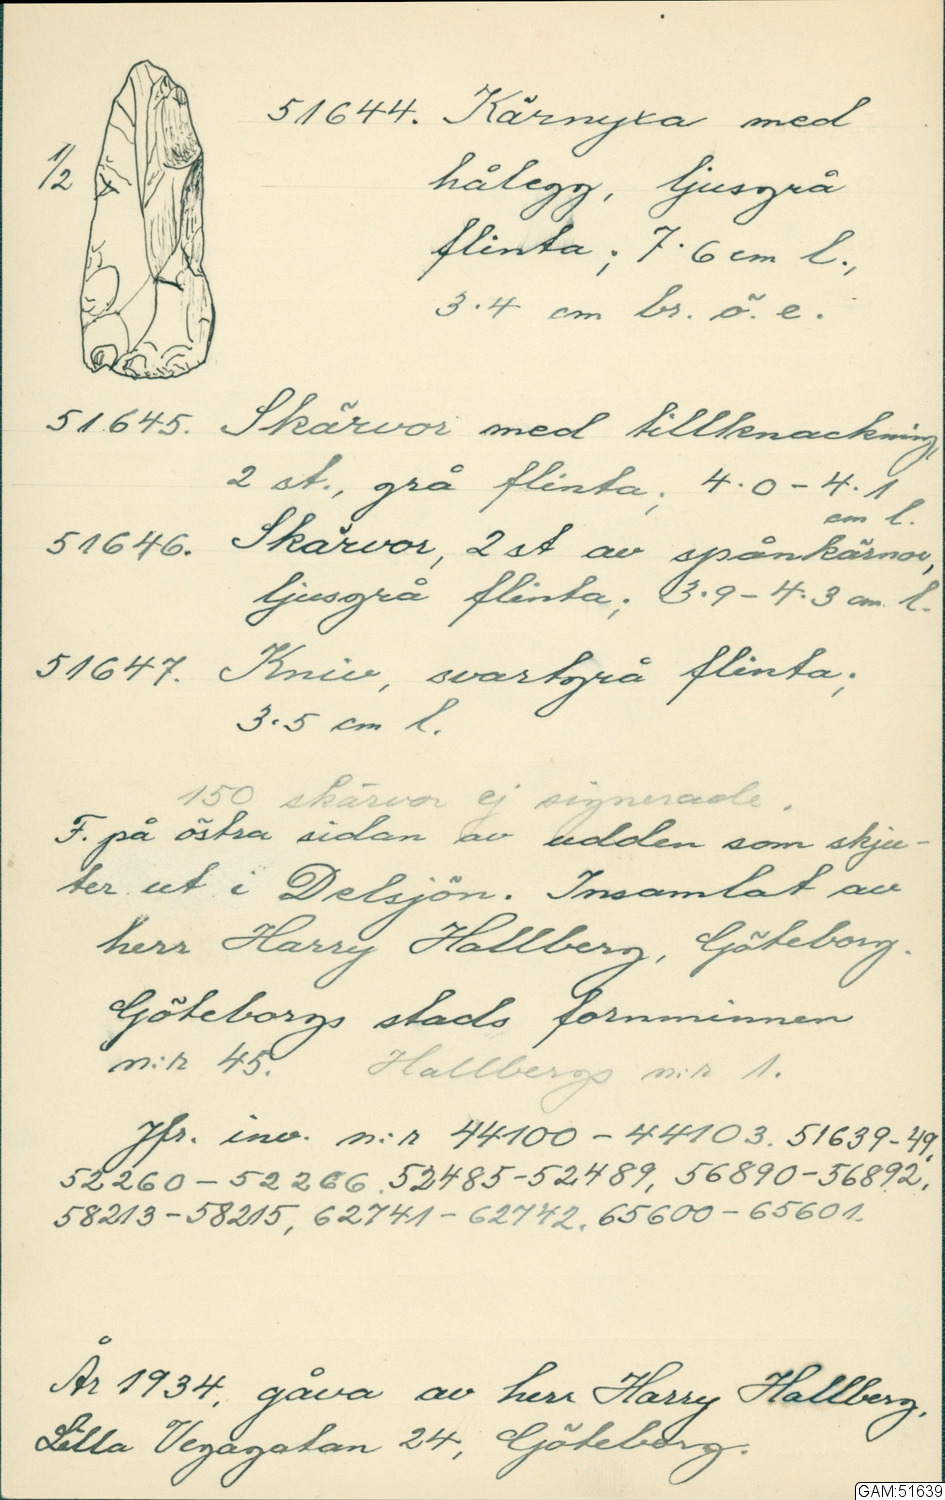 51644. Kärnyxa med
1/2
hålegg, ljusgrå
flinta; 7.6 cm l.,
3.4 cm br. ö. e.
51645. Skärvor med tillknackning,
2 st., grå flinta; 4.0-4.1
cm l.
51646. Skärvor, 2 st av spånkärnor,
ljusgrå flinta; 3.9-4.3 cm l.
51647. Kniv, svartgrå flinta;
3.5 cm l.
150 skärvor ej signerade.
F. på östra sidan av udden som skju-
ter ut i Delsjön. Insamlat av
herr Harry Hallberg, Göteborg.
Göteborgs stads fornminnen
n:r 45. Hallbergs n:r 1.
Jfr. inv. n:r 44100-44103. 51639-49,
52260-52266. 52485-52489, 56890-56892,
58213-58215, 62741-62742. 65600-65601.
År 1934, gåva av herr Harry Hallberg,
Lilla Vegagatan 24, Göteborg.
GAM:51639